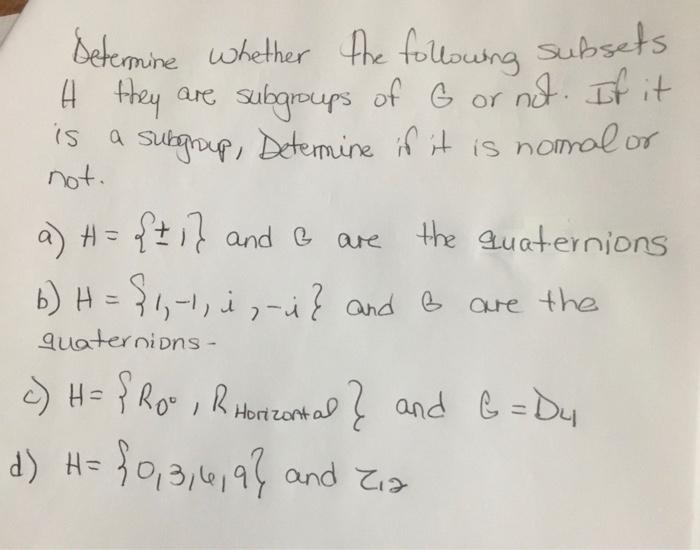 Determine whether the following subsets
H they are subgroups of G or not. If it
is a subgroup, Determine if it is normal or
not.
a) H = {±1} and G are the quaternions
b) H = {1,-1, i, -i} and G are the
quaternions-
c) H = {R0°, R Horizontal} and G = D4
d) H = {0,3,6,9} and Z12